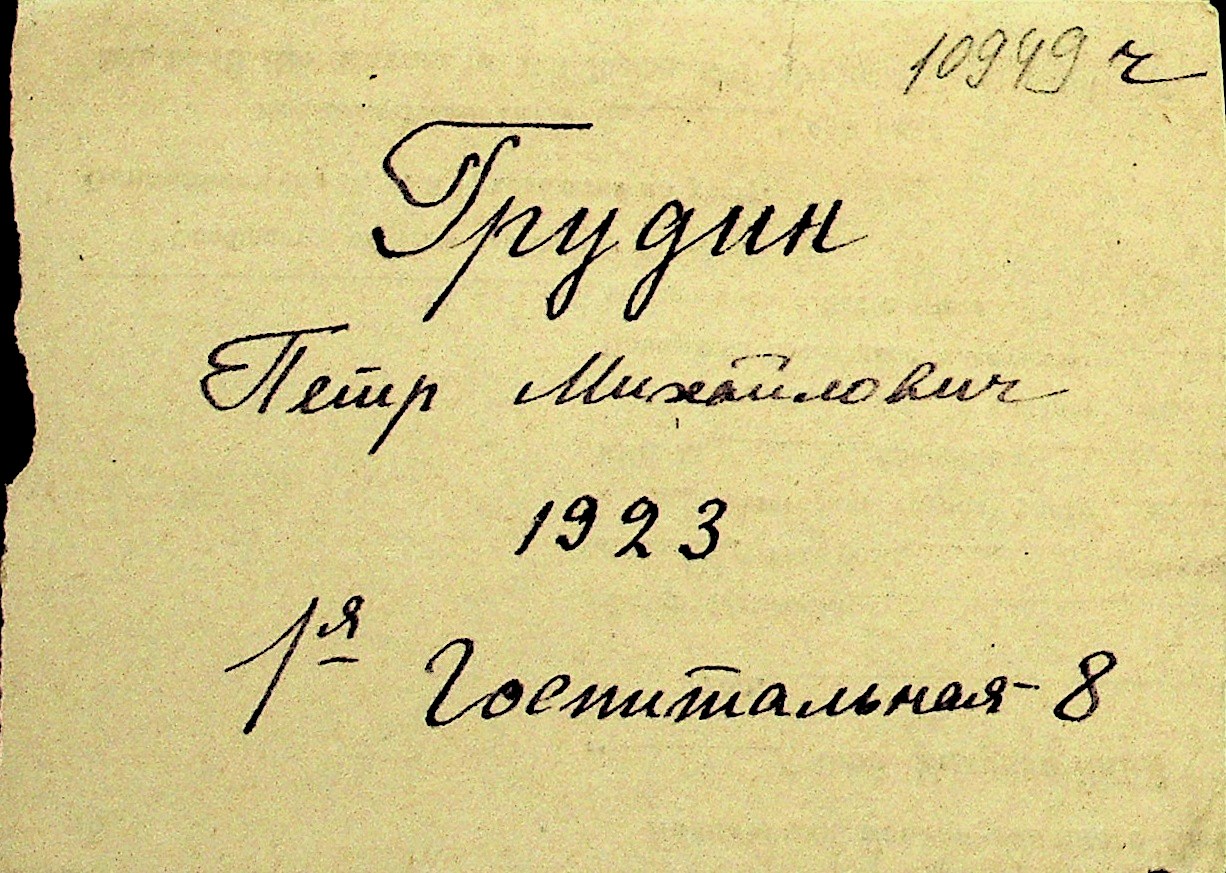 10949 ч
Грудин
Петр Михайлович
1923
1я Госпитальная-8